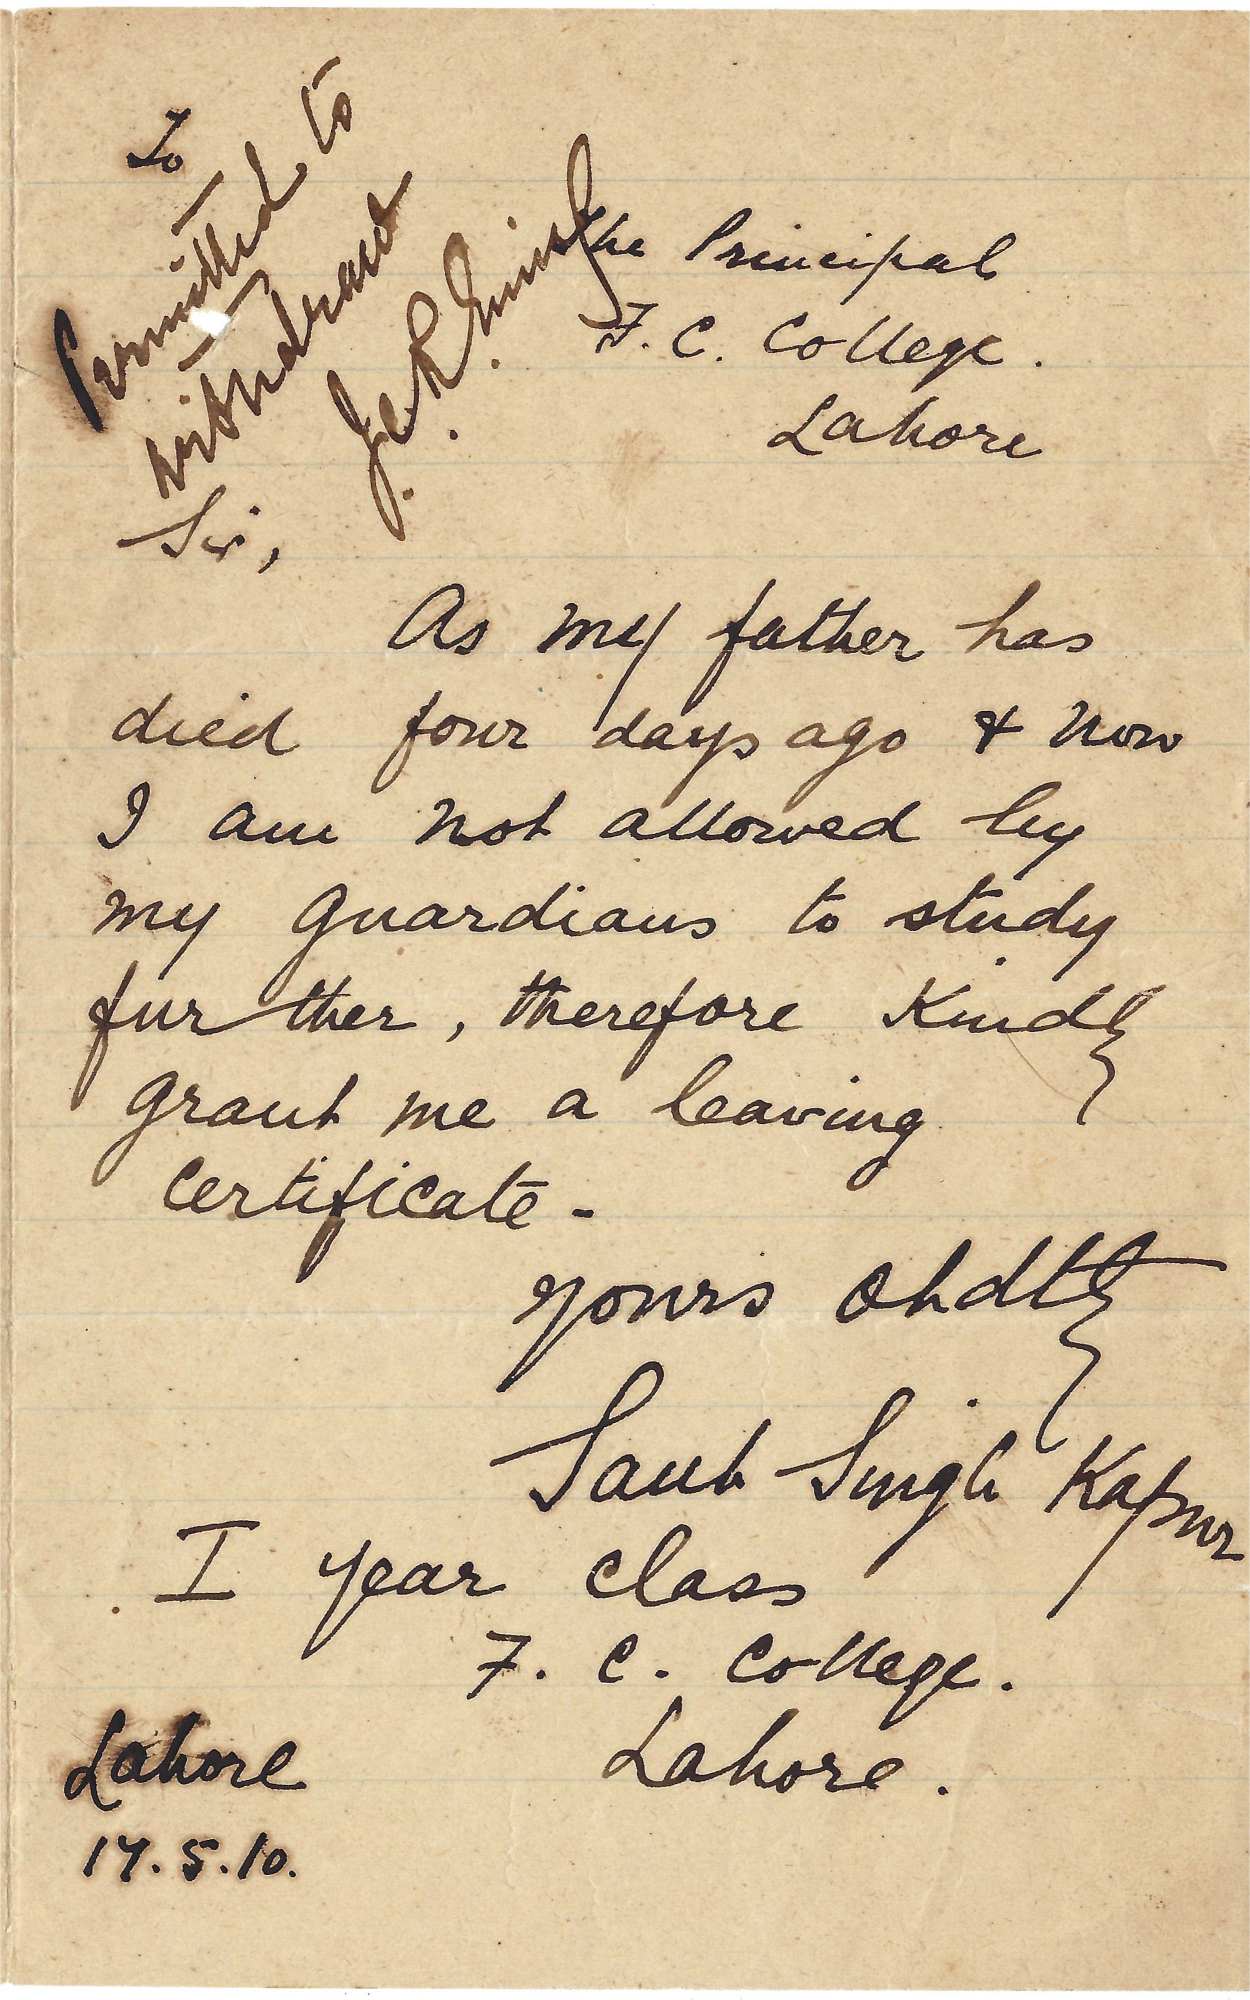 To
Permitted to
withdraw
J. C. R. Ewing
The Principal
F. C. College.
Lahore
Sir,
As my father has
died four days ago & now
I am not allowed by
my guardians to study
further, therefore kindly
grant me a leaving
certificate -
yours obdtly
Sant Singh Kapur
I year class
F. C. College.
Lahore.
Lahore
17.5.10.